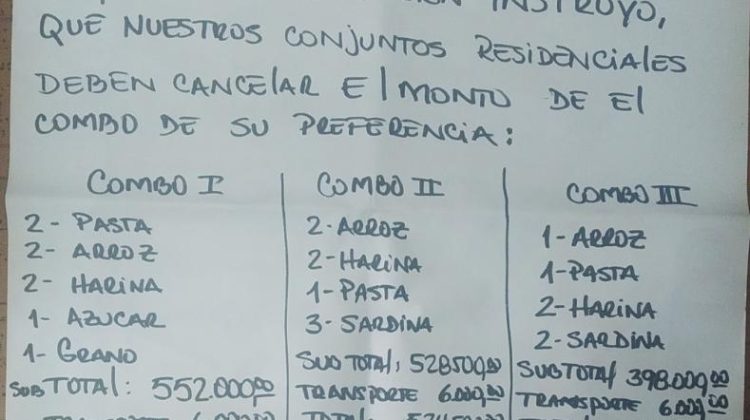 INSTRUYO,
QUE NUESTROS CONJUNTOS RESIDENCIALES
DEBEN CANCELAR El MONTO DE El
COMBO DE SU PREFERENCIA:
COMBO I
2- PASTA
2- ARROZ
2- HARINA
1- AZUCAR
1- GRANO
SUBTOTAL: 552.000,00
COMBO II
2- ARROZ
2- HARINA
1- PASTA
3- SARDINA
SUBTOTAL: 528500,00
TRANSPORTE 6.000,00
COMBO III
1- ARROZ
1- PASTA
2- HARINA
2- SARDINA
SUBTOTAL 398.000,00
TRANSPORTE 6.000,00